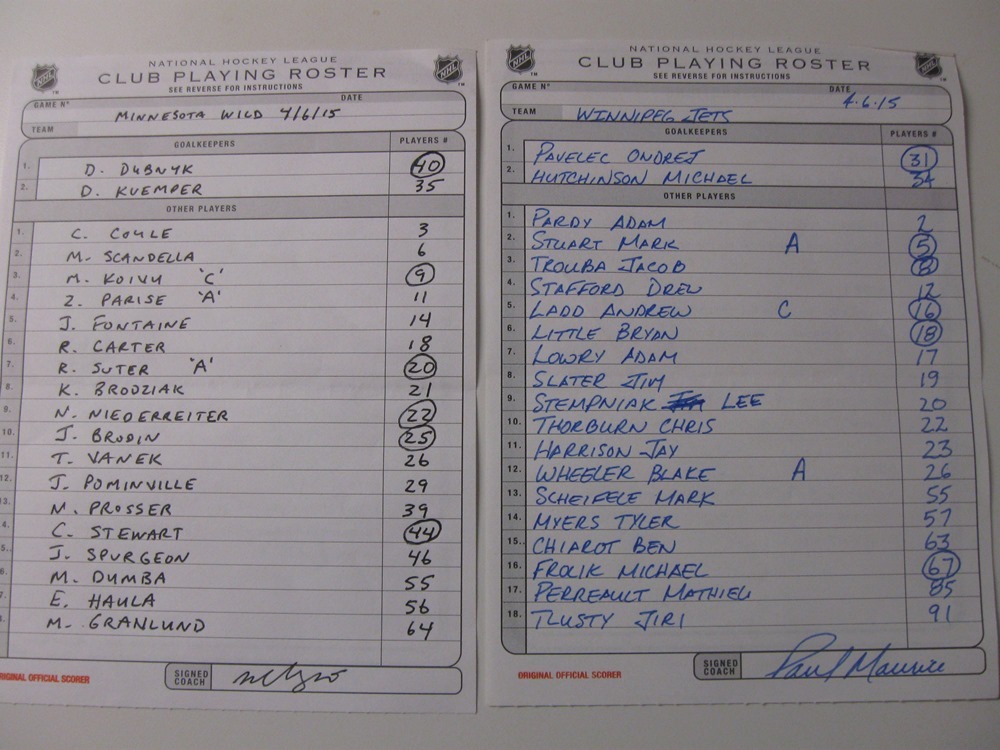 NHL
NATIONAL HOCKEY LEAGUE
CLUB PLAYING ROSTER
SEE REVERSE FOR INSTRUCTIONS
NHL
GAME N° DATE
TEAM MINNESOTA WILD 4/6/15
GOALKEEPERS PLAYERS #
1. D. DUBNYK 40
2. D. KUEMPER 35
OTHER PLAYERS
1. C. COYLE 3
2. M. SCANDELLA 6
3. M. KOIVU 'C' 9
4. Z. PARISE 'A' 11
5. J. FONTAINE 14
6. R. CARTER 18
7. R. SUTER 'A' 20
8. K. BRODZIAK 21
9. N. NIEDERREITER 22
10. J. BRODIN 25
11. T. VANEK 26
12. J. POMINVILLE 29
13. N. PROSSER 39
4. C. STEWART 44
5. J. SPURGEON 46
6. M. DUMBA 55
7. E. HAULA 56
8. M. GRANLUND 64
RIGINAL OFFICIAL SCORER
SIGNED COACH
NHL
NATIONAL HOCKEY LEAGUE
CLUB PLAYING ROSTER
SEE REVERSE FOR INSTRUCTIONS
NHL
GAME N° DATE 4.6.15
TEAM WINNIPEG JETS
GOALKEEPERS PLAYERS #
1. PAVELEC ONDREJ 31
2. HUTCHINSON MICHAEL 34
OTHER PLAYERS
1. PARDY ADAM 2
2. STUART MARK A 5
3. TROUBA JACOB 8
4. STAFFORD DREW 12
5. LADD ANDREW C 16
6. LITTLE BRYAN 18
7. LOWRY ADAM 17
8. SLATER JIM 19
9. STEMPNIAK LEE 20
10. THORBURN CHRIS 22
11. HARRISON JAY 23
12. WHEELER BLAKE A 26
13. SCHEIFELE MARK 55
14. MYERS TYLER 57
15. CHIAROT BEN 63
16. FROLIK MICHAEL 67
17. PERREAULT MATHIEU 85
18. TLUSTY JIRI 91
ORIGINAL OFFICIAL SCORER
SIGNED COACH Paul Maurice